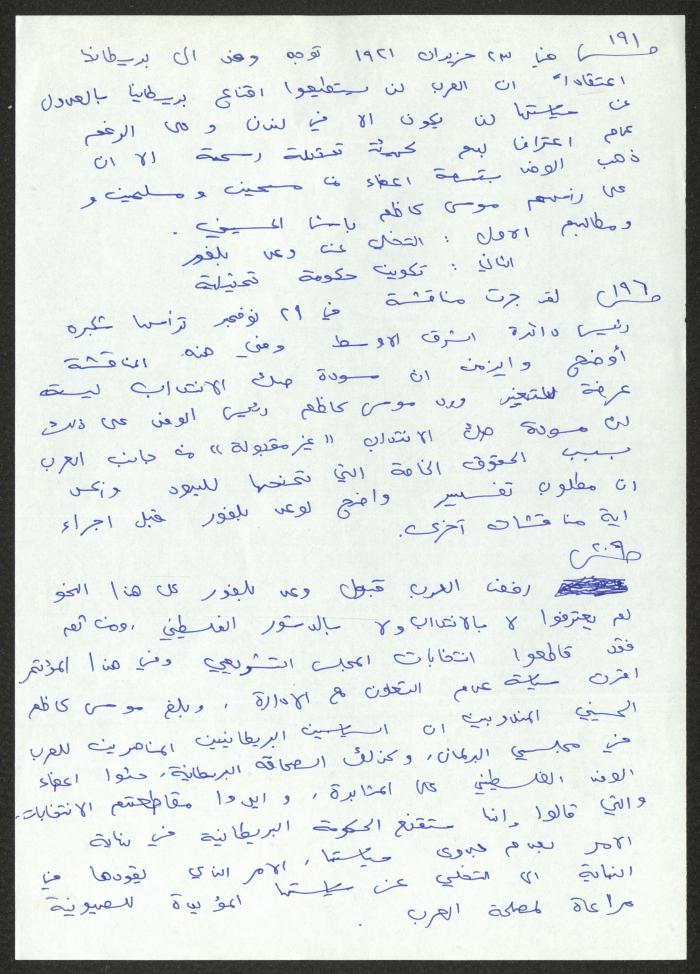 ص ١٩١ في ٢٣ حزيران ١٩٢١ توجه وفد الى بريطانيا
اعتقاداً ان العرب لن يستطيعوا اقناع بريطانيا بالعدول
عن سياستها لن يكون الا في لندن و على الرغم
عدم اعتراف لهم كهيئة تمثيلية رسمية الا ان
ذهب الوفد بتسعة اعضاء من مسيحيين ومسلمين و
على رأسهم موسى كاظم باشا الحسيني .
ومطالبهم الاول : التخلي عن وعد بلفور
الثاني : تكوين حكومة تمثيلية
ص ١٩٦ لقد جرت مناقشة في ٢٩ نوفمبر ترأسها شكبره
رئيس دائرة الشرق الاوسط وفي هذه المناقشة
أوضح وايزمن ان مسودة صك الانتداب ليسته
عرضة للتغير ورد موسى كاظم رئيس الوفد على ذلك
ان مسودة صك الانتداب "غير مقبولة" من جانب العرب
بسبب الحقوق الخاصة التي تمنحها لليهود
ان مطلوب تفسير واضح لوعد بلفور قبل اجراء
اية مناقشات آخرى.
ص ٢٠٩
رفض العرب قبول وعد بلفور على هذا النحو
لم يعترفوا لا بالانتداب ولا بالدستور الفلسطيني ، ومن ثم
فقد قاطعوا انتخابات المجلس التشريعي وفي هذا المؤتمر
اقرت سياسة عدم التعاون مع الادارة ، وبلغ موسى كاظم
الحسيني المندوبين ان السياسيين البريطانيين المناصرين للعرب
في مجلسي البرلمان، وكذلك الصحافة البريطانية، حثوا اعضاء
الوفد الفلسطيني على المثابرة ، و ايدوا مقاطعتهم الانتخابات،
والتي قالوا إنها ستقنع الحكومة البريطانية في نهاية
الامر بعدم جدوى سياستها ، الامر الذي يقودها في
النهاية الى التخلي عن سياستها المؤيدة للصهيونية
مراعاة لمصلحة العرب .